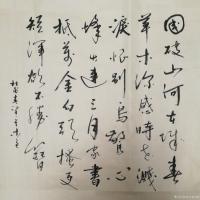 國破山河在城春
草木深感時花濺
淚恨別鳥驚心
烽火連三月家書
抵萬金白頭搔更
短渾欲不勝簪
杜甫春望